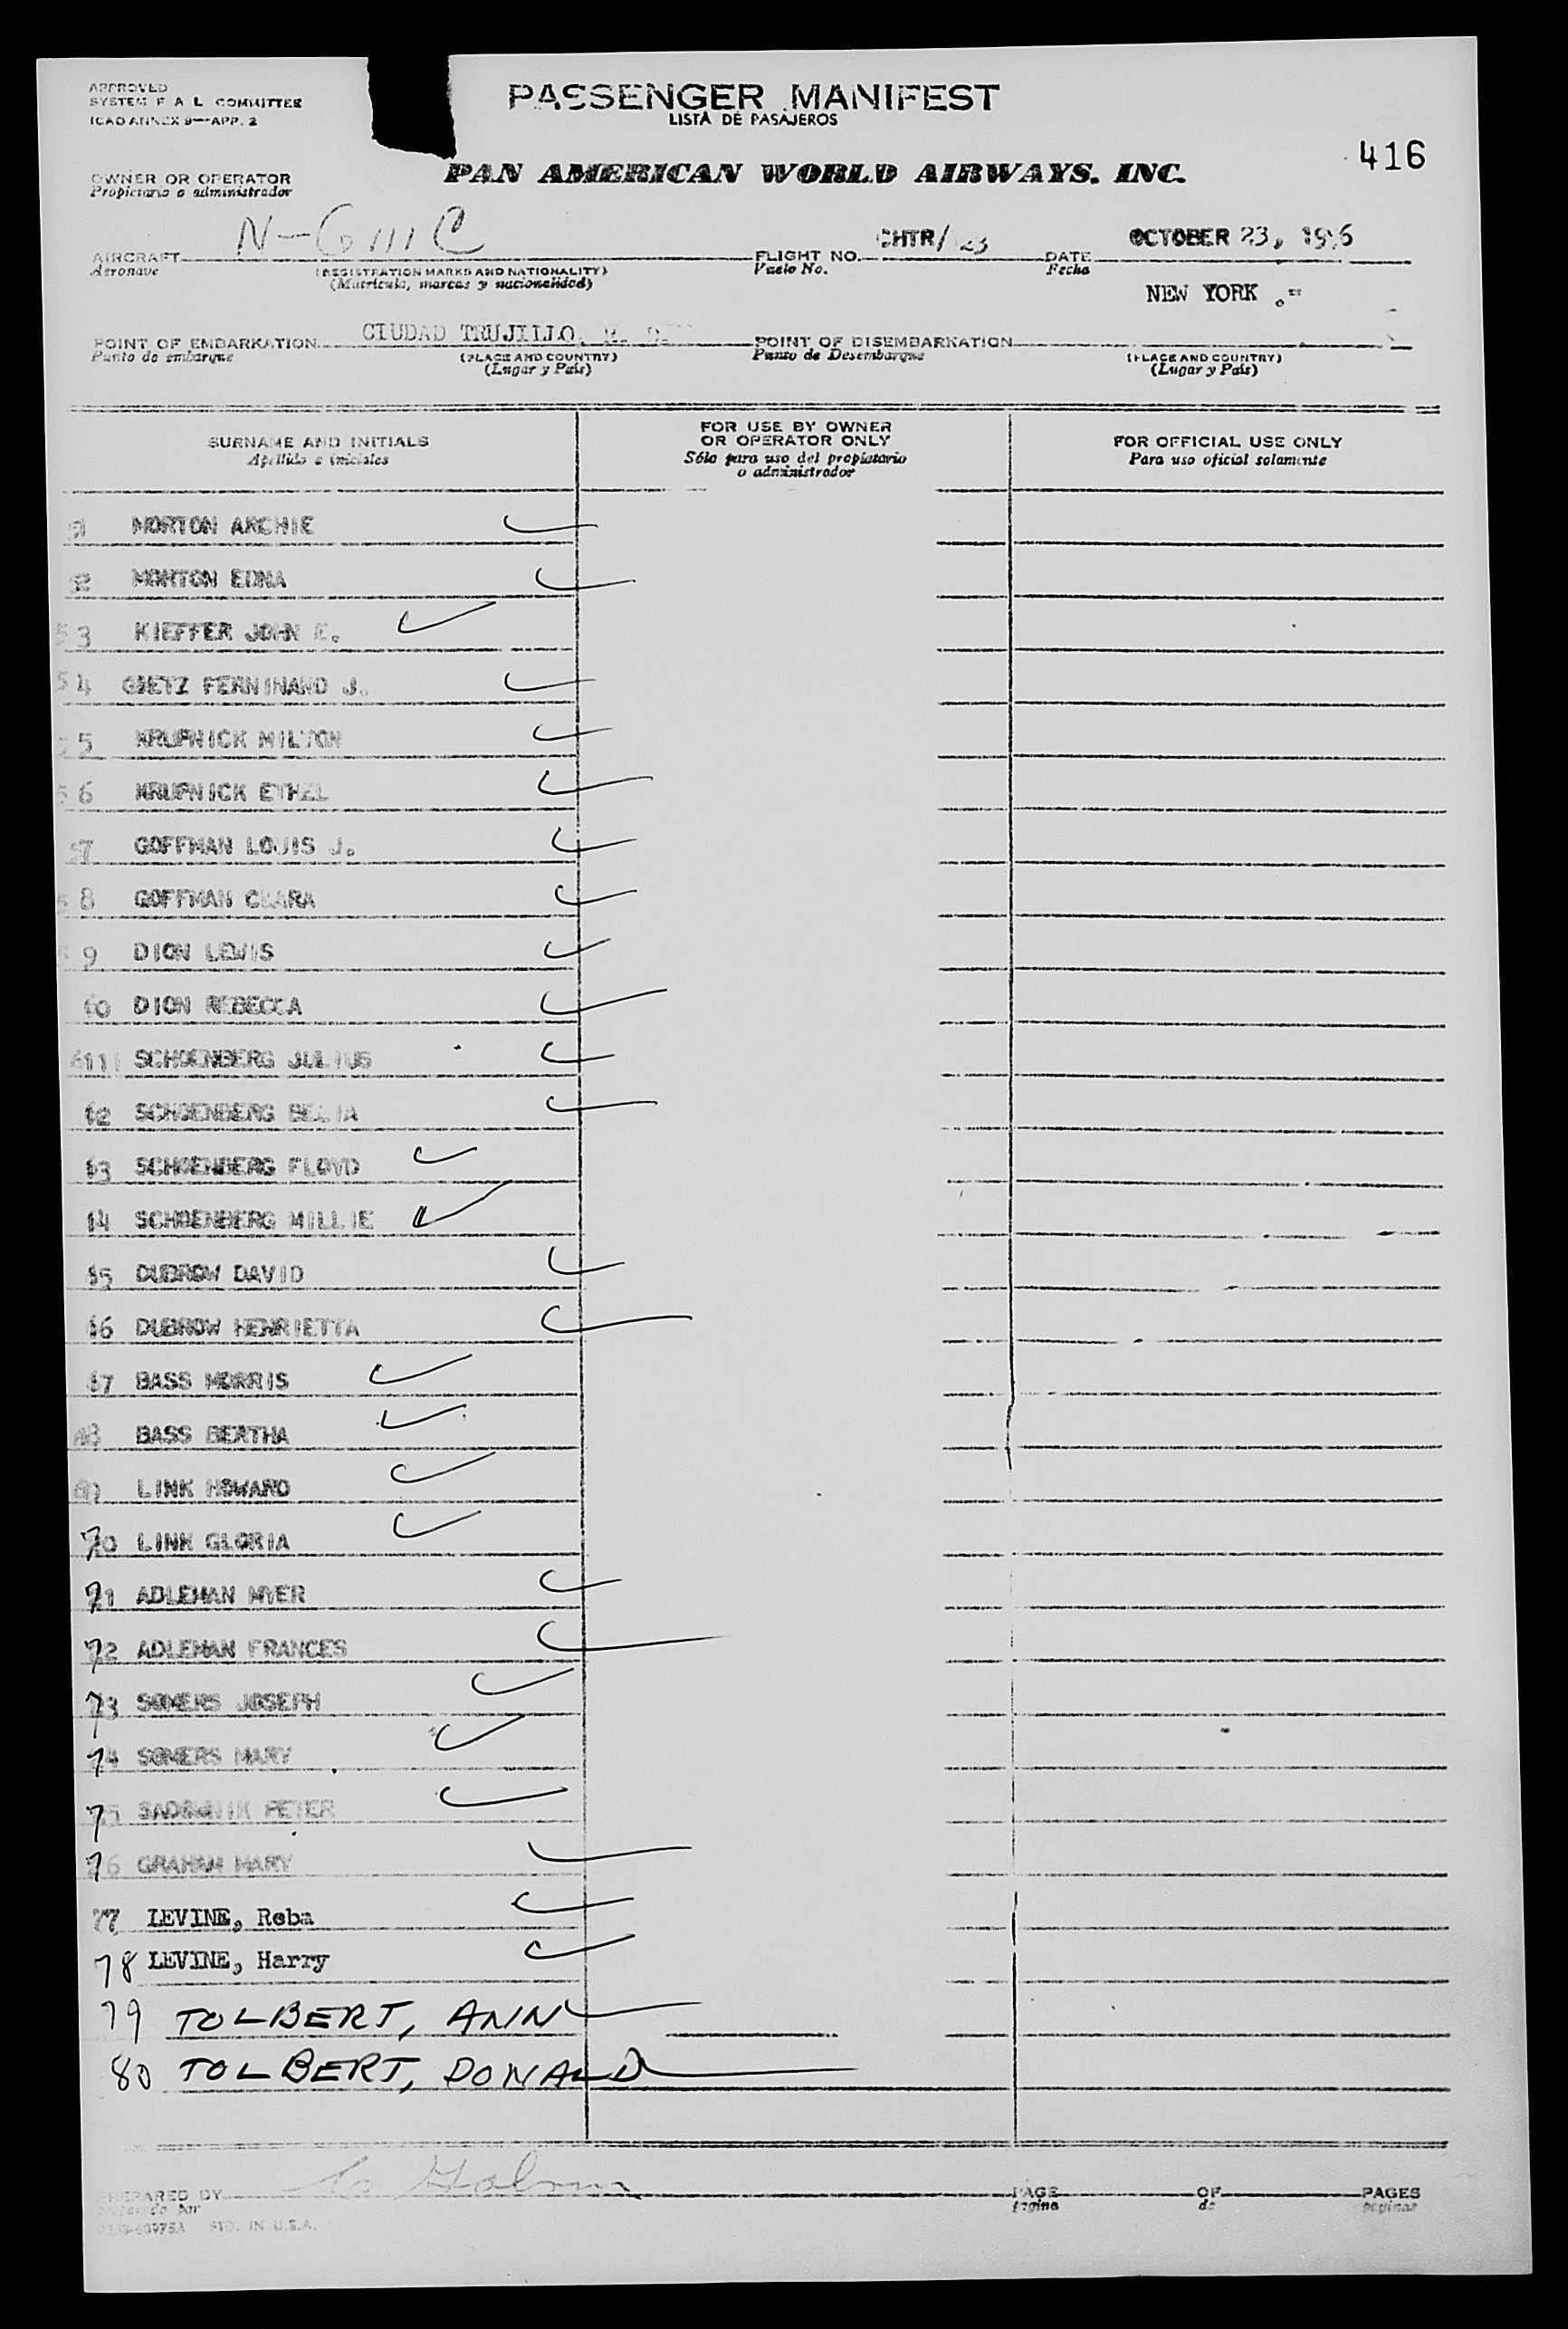 APPROVED
SYSTEM F A L COMMITTEE
ICAO ANNEX 9—APP. 2
PASSENGER MANIFEST
LISTA DE PASAJEROS
416
OWNER OR OPERATOR
Propietario o administrador
PAN AMERICAN WORLD AIRWAYS, INC.
AIRCRAFT N-6111C
Aeronave
(REGISTRATION MARKS AND NATIONALITY)
(Matricula, marcas y nacionalidad)
FLIGHT NO. CHTR/ 23
Vuelo No.
DATE OCTOBER 23, 1956
Fecha
NEW YORK .-
POINT OF EMBARKATION CIUDAD TRUJILLO, R. D.
Punto de embarque
(PLACE AND COUNTRY)
(Lugar y País)
POINT OF DISEMBARKATION
Punto de Desembarque
(PLACE AND COUNTRY)
(Lugar y País)
SURNAME AND INITIALS
Apellido e iniciales
FOR USE BY OWNER
OR OPERATOR ONLY
Sólo para uso del propietario
o administrador
FOR OFFICIAL USE ONLY
Para uso oficial solamente
MORTON ARCHIE
MORTON EDNA
53 KIEFFER JOHN E.
54 GOETZ FERNINAND J.
55 KRUPNICK MILTON
56 KRUPNICK ETHEL
57 GOFFMAN LOUIS J.
58 GOFFMAN CLARA
59 DION LEWIS
60 DION REBECCA
61 SCHOENBERG JULIUS
62 SCHOENBERG BELIA
63 SCHOENBERG FLOYD
64 SCHOENBERG MILLIE
65 DUBROW DAVID
66 DUBROW HENRIETTA
67 BASS MORRIS
68 BASS BERTHA
69 LINK HOWARD
70 LINK GLORIA
71 ADLEMAN MYER
72 ADLEMAN FRANCES
73 SOMERS JOSEPH
74 SOMERS MARY
75 SADOWNIK PETER
76 GRAHAM MARY
77 LEVINE, Reba
78 LEVINE, Harry
79 TOLBERT, ANN
80 TOLBERT, DONALD
PREPARED BY
preparado por
STD. IN U.S.A.
PAGE OF PAGES
Página de páginas